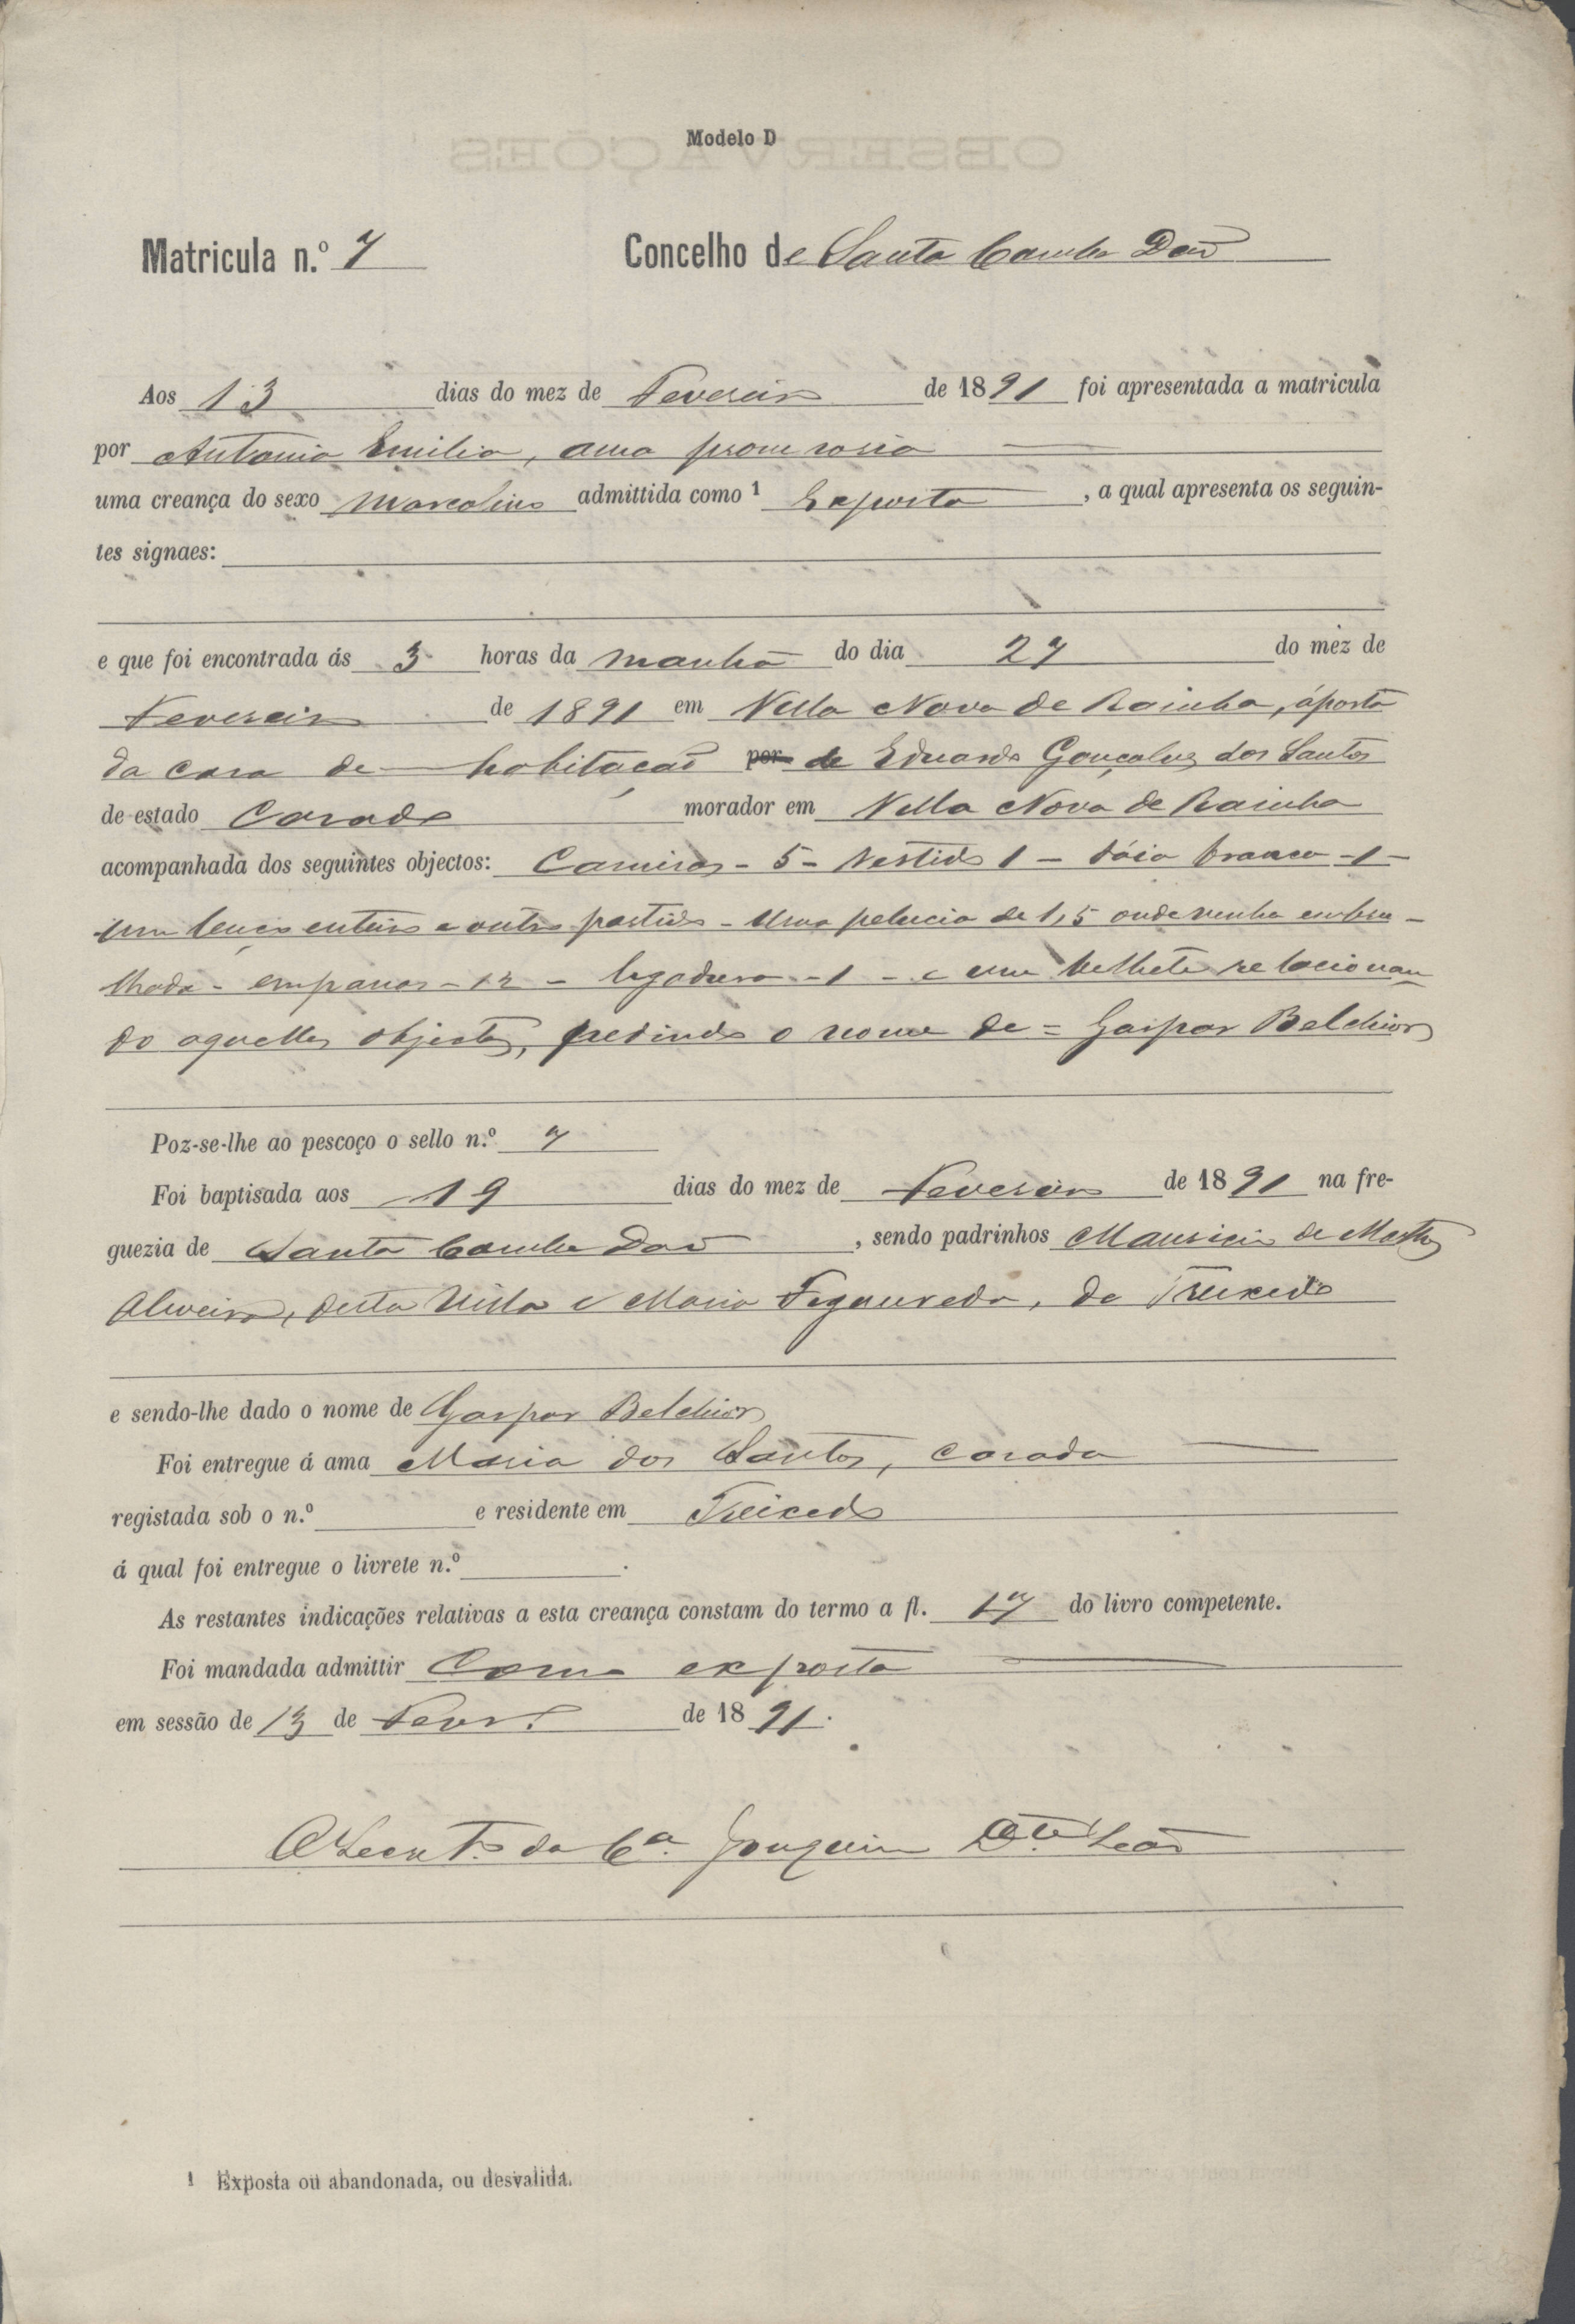 Modelo D
Matricula n.º 7 Concelho de Santa Comba Dão
Aos 13 dias do mez de Fevereiro de 1891 foi apresentada a matricula
por Antonia Emilia, ama provisoria
uma creança do sexo Masculino admittida como ¹ Exposta, a qual apresenta os seguin-
tes signaes:
e que foi encontrada ás 3 horas da manhã do dia 27 do mez de
Fevereiro de 1891 em Villa Nova de Rainha, á porta
da casa de habitação por de Eduardo Gonçalves dos Santos
de estado Casado morador em Villa Nova de Rainha
acompanhada dos seguintes objectos: Camisas - 5 - Vestido 1 - Sáia branca - 1 -
um lenço enteiro e outro partido - Uma pelucia de 1,5 onde vinha embru-
lhada - empanos - 12 - legadura - 1 - e um bilhete relacionan-
do aquelles objectos, pedindo o nome de = Gaspar Belchior
Poz-se-lhe ao pescoço o sello n.º 7
Foi baptisada aos 19 dias do mez de Fevereiro de 1891 na fre-
guezia de Santa Comba Dão, sendo padrinhos Mauricio de Mattos
Oliveira, desta Villa e Maria Figueiredo, de Treixedo
e sendo-lhe dado o nome de Gaspar Belchior
Foi entregue á ama Maria dos Santos, casada
registada sob o n.º e residente em Treixedo
á qual foi entregue o livrete n.º .
As restantes indicações relativas a esta creança constam do termo a fl. 17 do livro competente.
Foi mandada admittir Como exposta
em sessão de 13 de Fevr.º de 1891.
O Secret.º da C.ª Joaquim Leão
¹ Exposta ou abandonada, ou desvalida.